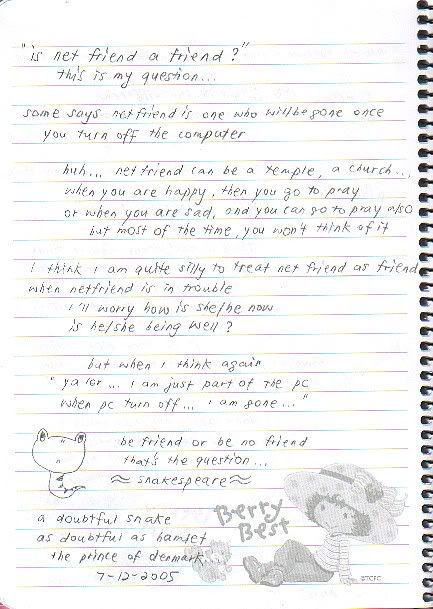 "is net friend a friend?"
this is my question...
some says netfriend is one who will be gone once
you turn off the computer
huh... netfriend can be a temple, a church...
when you are happy, then you go to pray
or when you are sad, and you can go to pray also
but most of the time, you won't think of it
I think I am quite silly to treat net friend as friend
when netfriend is in trouble
I'll worry how is she/he now
is he/she being well?
but when I think again
"ya lor... I am just part of the pc
when pc turn off... I am gone..."
be friend or be no friend
that's the question...
≈ snakespeare ≈
a doubtful snake
as doubtful as hamlet
the prince of denmark
7-12-2005
Berry
Best
©TCFC